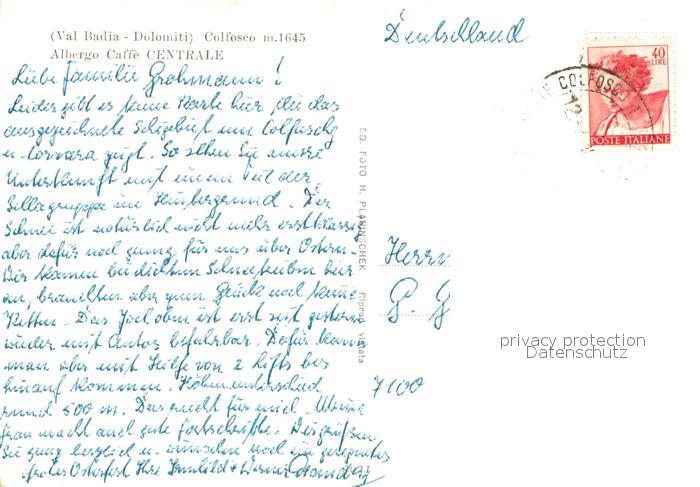 (Val Badia - Dolomiti) Colfosco m.1645
Albergo Caffè CENTRALE
Liebe Familie Grohmann!
Leider gibt es keine Karte hier, die das
ausgezeichnete Skigebiet um Colfuschg
u. Corvara zeigt. So sehen Sie unsre
Unterkunft mit einem Teil der
Sellagruppe im Hintergrund. Der
Schnee ist natürlich nicht mehr erstklassig
aber dafür noch genug für uns über Ostern.
Wir kamen bei dichtem Schneetreiben hier
an, brauchten aber zum Glück noch keine
Ketten. Das Joch oben ist erst seit gestern
wieder mit Autos befahrbar. Dafür kann
man aber mit Hilfe von 2 Lifts bis
hinauf kommen. Höhenunterschied
rund 500 m. Das reicht für mich. Meine
Frau macht auch gute Fortschritte. Wir grüßen
Sie ganz herzlich u. wünschen noch ein gesegnetes
frohes Osterfest Ihre Irmhild + Werner
ED. FOTO H. PLANINSCHEK Riprod. vietata
Deutschland
40
LIRE
POSTE ITALIANE
COLFOSCO
Herrn
P. G
7100
privacy protection
Datenschutz